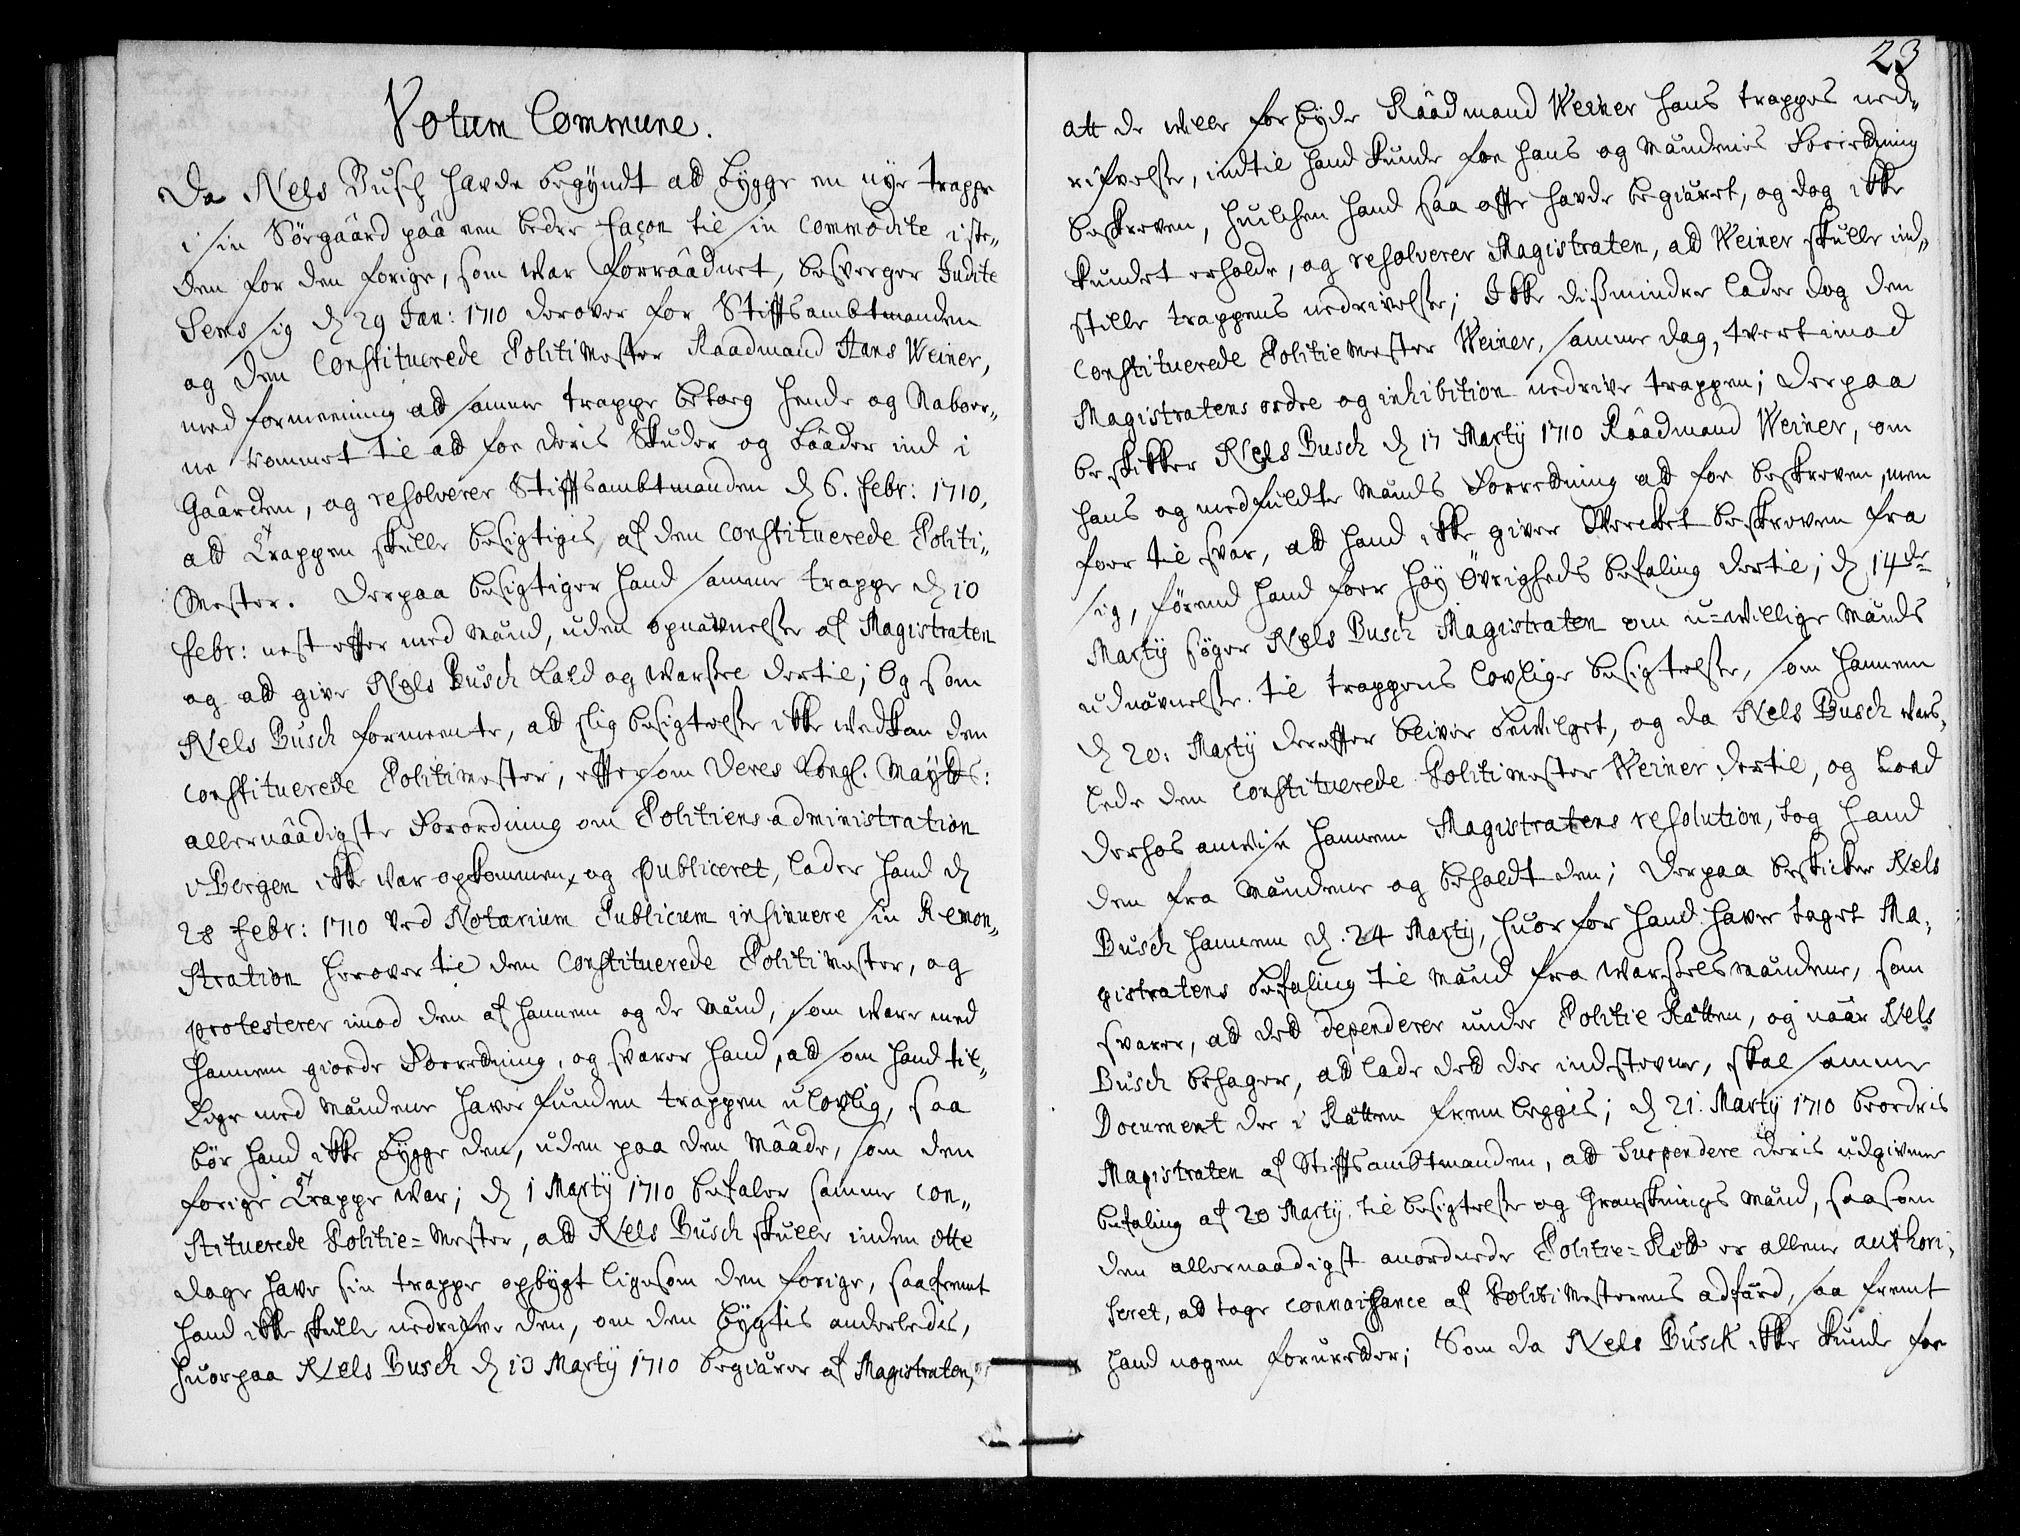 Votum Commune.
Da Nels Busch hafde begyndt att bygge en nye trappe
i sin Siøegaard paa een bedre façon til sin commodite iste-
den for den forige, som war forraadnet, besverger Judite
Sems sig d 29 Jan: 1710 derover for Stiftsambtmanden
og den Constituerede Politimester Raadmand Hans Weiner,
med formeening att samme trappe betog hende og Naboer-
ne rommet til att foe deris Skuder og baader ind i
Gaarden, og resolverer Stiftsambtmanden d 6. febr: 1710,
att Trappen skulle besigtigis af den Constituerede Politi-
Mester. Derpaa besigtiger hand samme trappe d 10
febr: nest efter med Mænd, uden opnævnelse af Magistraten
og att give Nels Busch Kald og Warsel dertil; Og som
Nels Busch formeente, att slig besigtelse ikke wedkom den
Constituerede Politimester, eftersom Deres Kongl. Mayts:
allernaadigste Forordning om Politiens administration
i Bergen ikke war opkommen, og publiceret, lader hand d
28 febr: 1710 ved Notarium Publicum insinuere sin Remon-
stration herover til den Constituerede Politimester, og
protesterer imod den af hannem og de Mænd, som ware med
hannem giorde Forretning, og svarer hand, att som hand til-
lige med Mændene haver funden trappen ulovlig, saa
bør hand ikke bygge den, uden paa den Maade, som den
forige Trappe war; d 1 Marty 1710 befaler samme con-
stituerede Politie-Mester, att Nels Busch skulle inden otte
dage have sin trappe opbygt ligesom den forige, saafremt
hand ikke skulle nedrifve den, om den bygtis anderledes,
huorpaa Nels Busch d 13 Marty 1710 begiærer af Magistraten,
23
att de wille forbyde Raadmand Weiner hans trappes ned-
rifvelse, indtil hand kunde foe hans og Mændenis Forretning
beskreven, huilchen hand saa ofte hafde begiæret, og dog ikke
kundet erholde, og resolverer Magistraten, att Weiner skulle ind-
stille trappens nedrivelse; Ikke dismindre lader dog den
Constituerede Politiemester Weiner, samme dag, tvert imod
Magistratens ordre og inhibition nedrive trappen; Derpaa
beskikker Nels Busch d 17 Marty 1710 Raadmand Weiner, om
hans og medfuldte Mænds Forretning att foe beskreven, men
foer til svar, att hand ikke giver Verket beskreven fra
sig, førend hand foer høy Øvrigheds befaling dertil; d 14de
Marty søger Nels Busch Magistraten om u-willige Mænds
udnævnelse til trappens lovlige besigtelse, som hannem
d 20. Marty derefter bliver bevilget, og da Nels Busch wars-
lede den Constituerede Politimester Weiner dertil, og loed
derhos anvise hannem Magistratens resolution, tog hand
den fra Mændene og beholdt den; Derpaa beskicker Nels
Busch hannem d. 24 Marty, huorfor hand haver taget Ma-
gistratens befaling til Mænd fra Warselsmændene, som
svarer, att dett dependerer under Politie Rætten, og naar Nels
Busch behager, att lade dett der indstevne, skal samme
Document der i Rætten fremleggis; d 21. Marty 1710 beordris
Magistraten af Stiftsambtmanden, att Suspendere deris udgivne
befaling af 20 Marty til besigtelse og Granskings Mænd, saasom
den allernaadigst anordnede Politie-Rett er allene authori-
seret, att tage connaissance af Politimesterens adfærd, saa fremt
hand nogen forurætter; Som da Nels Busch ikke kunde foe